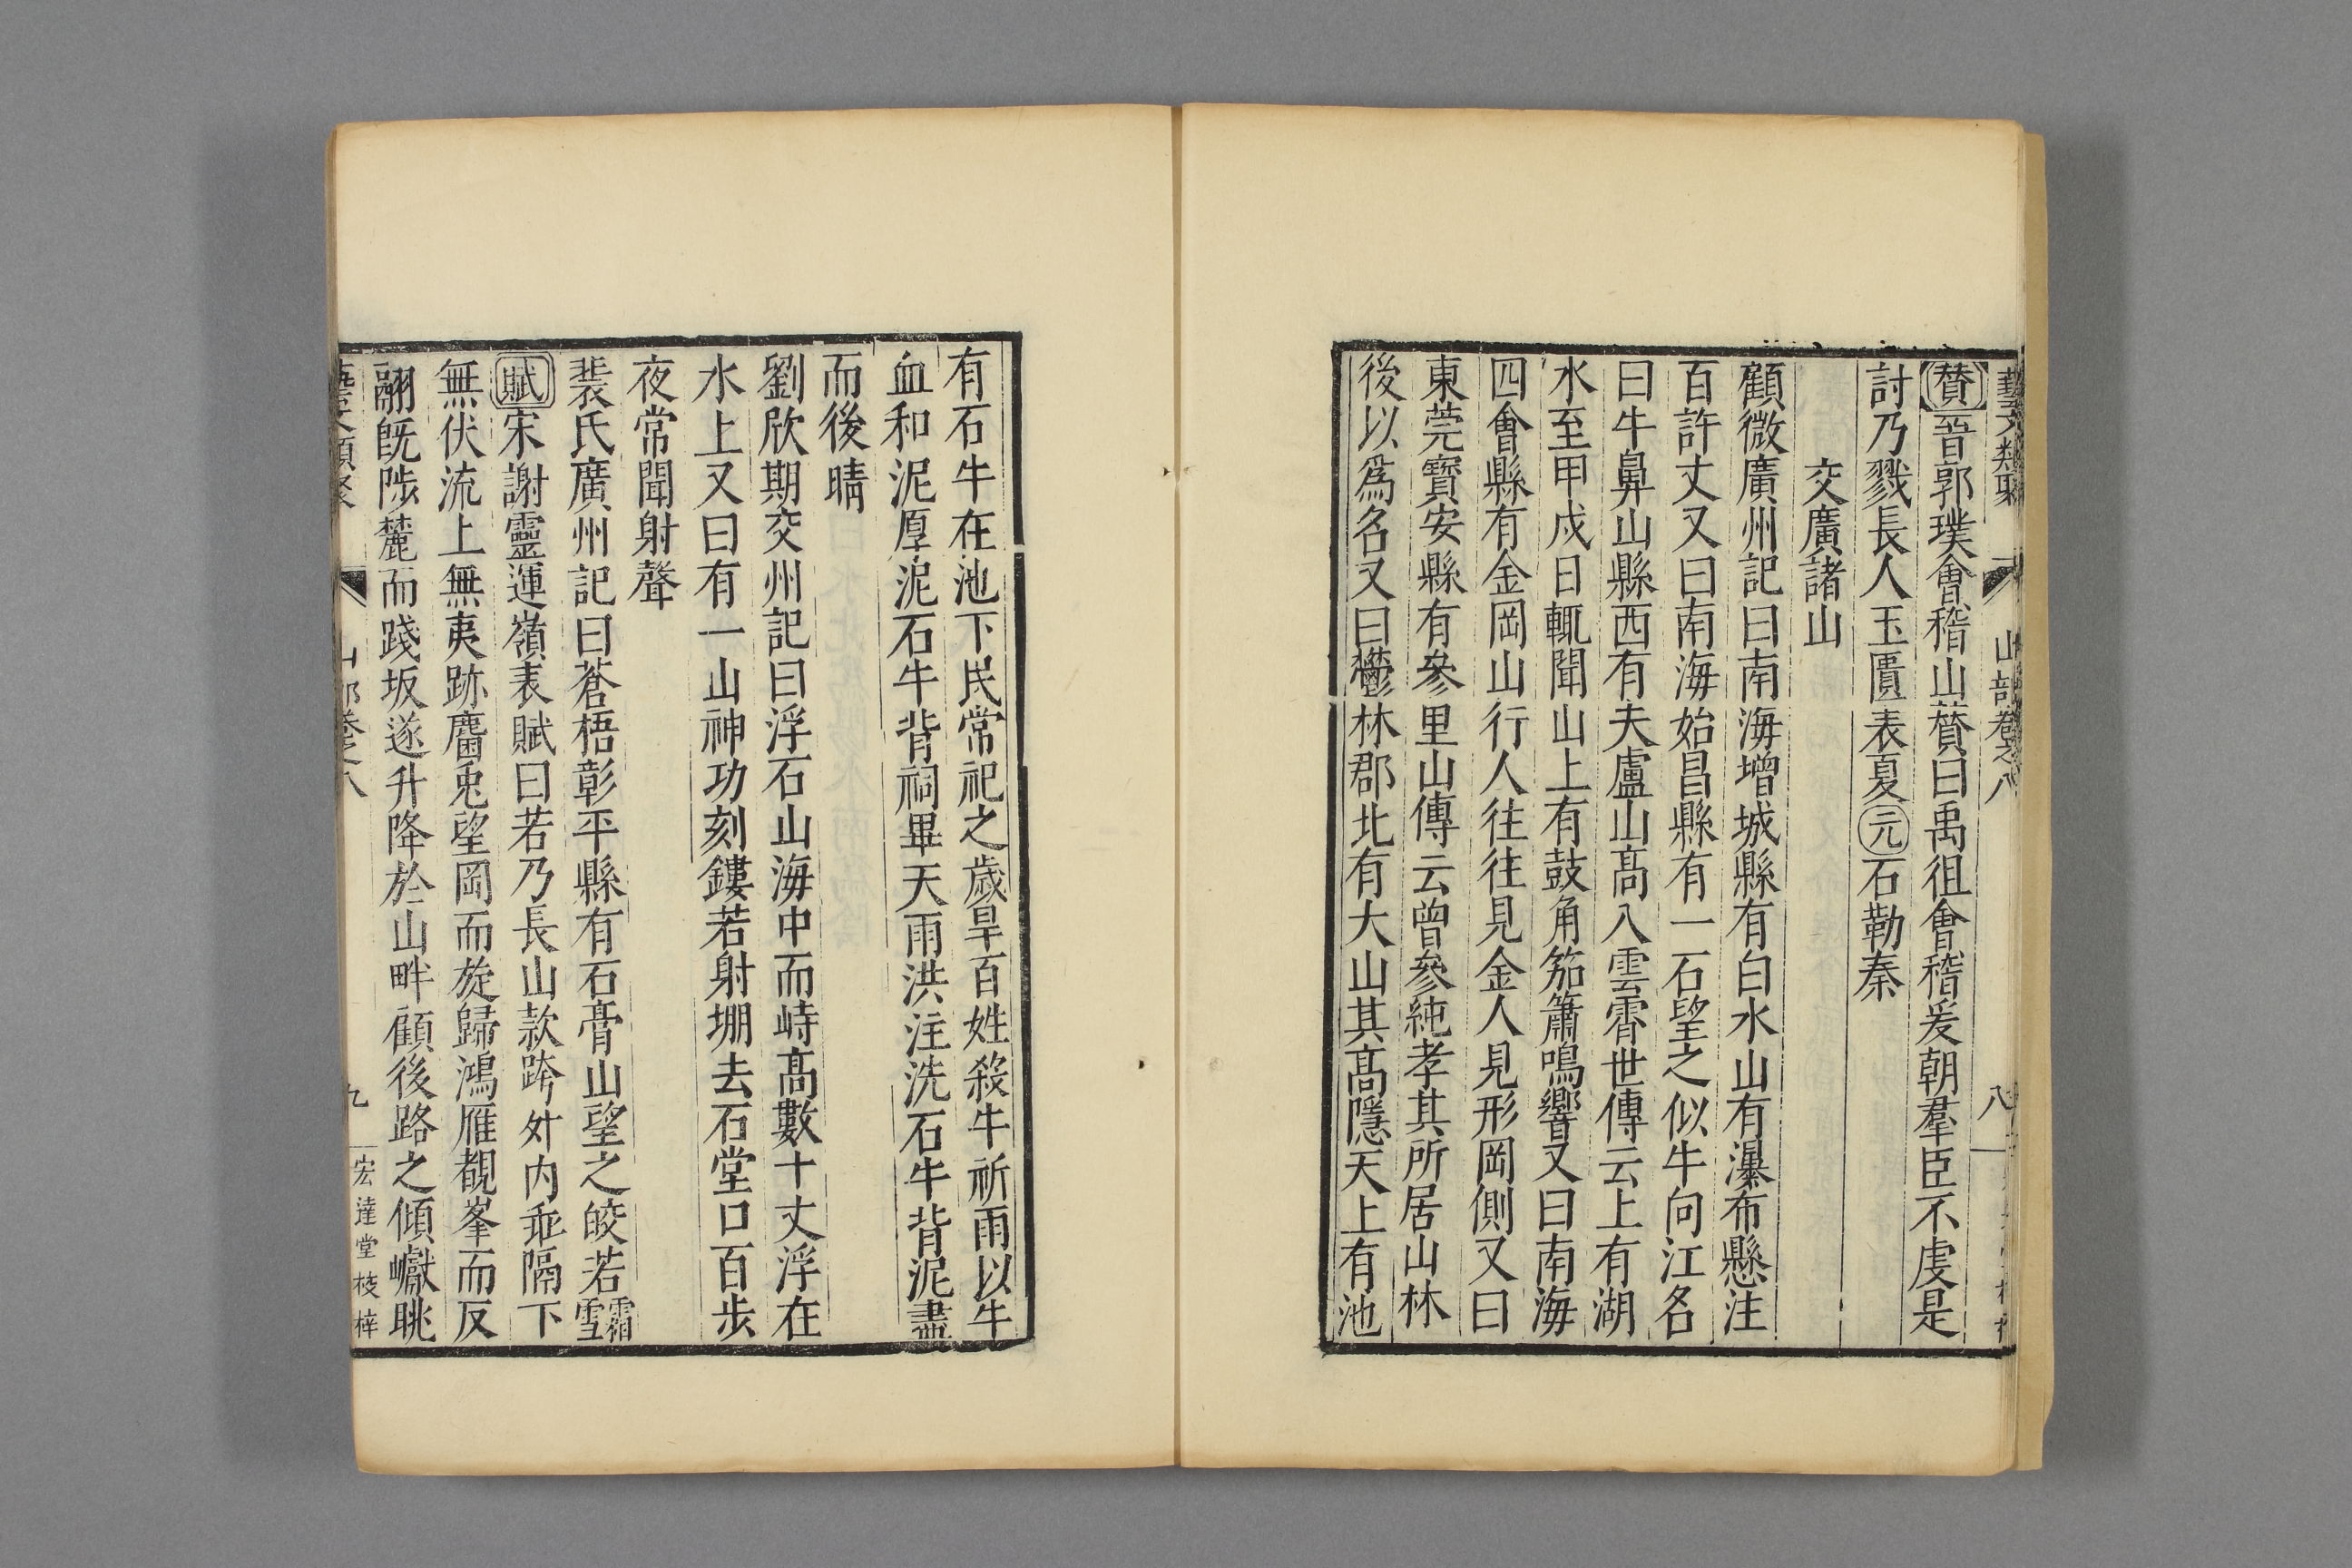 藝文類聚 山部卷之八 八
贊晉郭璞會稽山贊曰禹徂會稽爰朝羣臣不虔是
討乃戮長人玉匱表夏元石勒秦
交廣諸山
顧微廣州記曰南海增城縣有白水山有瀑布懸注
百許丈又曰南海始昌縣有一石望之似牛向江名
曰牛鼻山縣西有夫盧山髙入雲霄世傳云上有湖
水至甲戍日輒聞山上有鼓角笳簫鳴響又曰南海
四會縣有金岡山行人往往見金人見形岡側又曰
東莞寳安縣有參里山傳云曾參純孝其所居山林
後以爲名又曰鬱林郡北有大山其髙隱天上有池
有石牛在池下民常祀之歲旱百姓殺牛祈雨以牛
血和泥厚泥石牛背祠畢天雨洪注洗石牛背泥盡
而後晴
劉欣期交州記曰浮石山海中而峙髙數十丈浮在
水上又曰有一山神功刻鏤若射堋去石堂口百步
夜常聞射聲
裴氏廣州記曰蒼梧彰平縣有石膏山望之皎若霜雪
賦宋謝靈運嶺表賦曰若乃長山款跨外内乖隔下
無伏流上無夷跡麕兎望岡而旋歸鴻雁覩峯而反
翮旣陟麓而踐坂遂升降於山畔顧後路之傾巘眺
藝文類聚 山部卷之八 九 宏達堂校梓